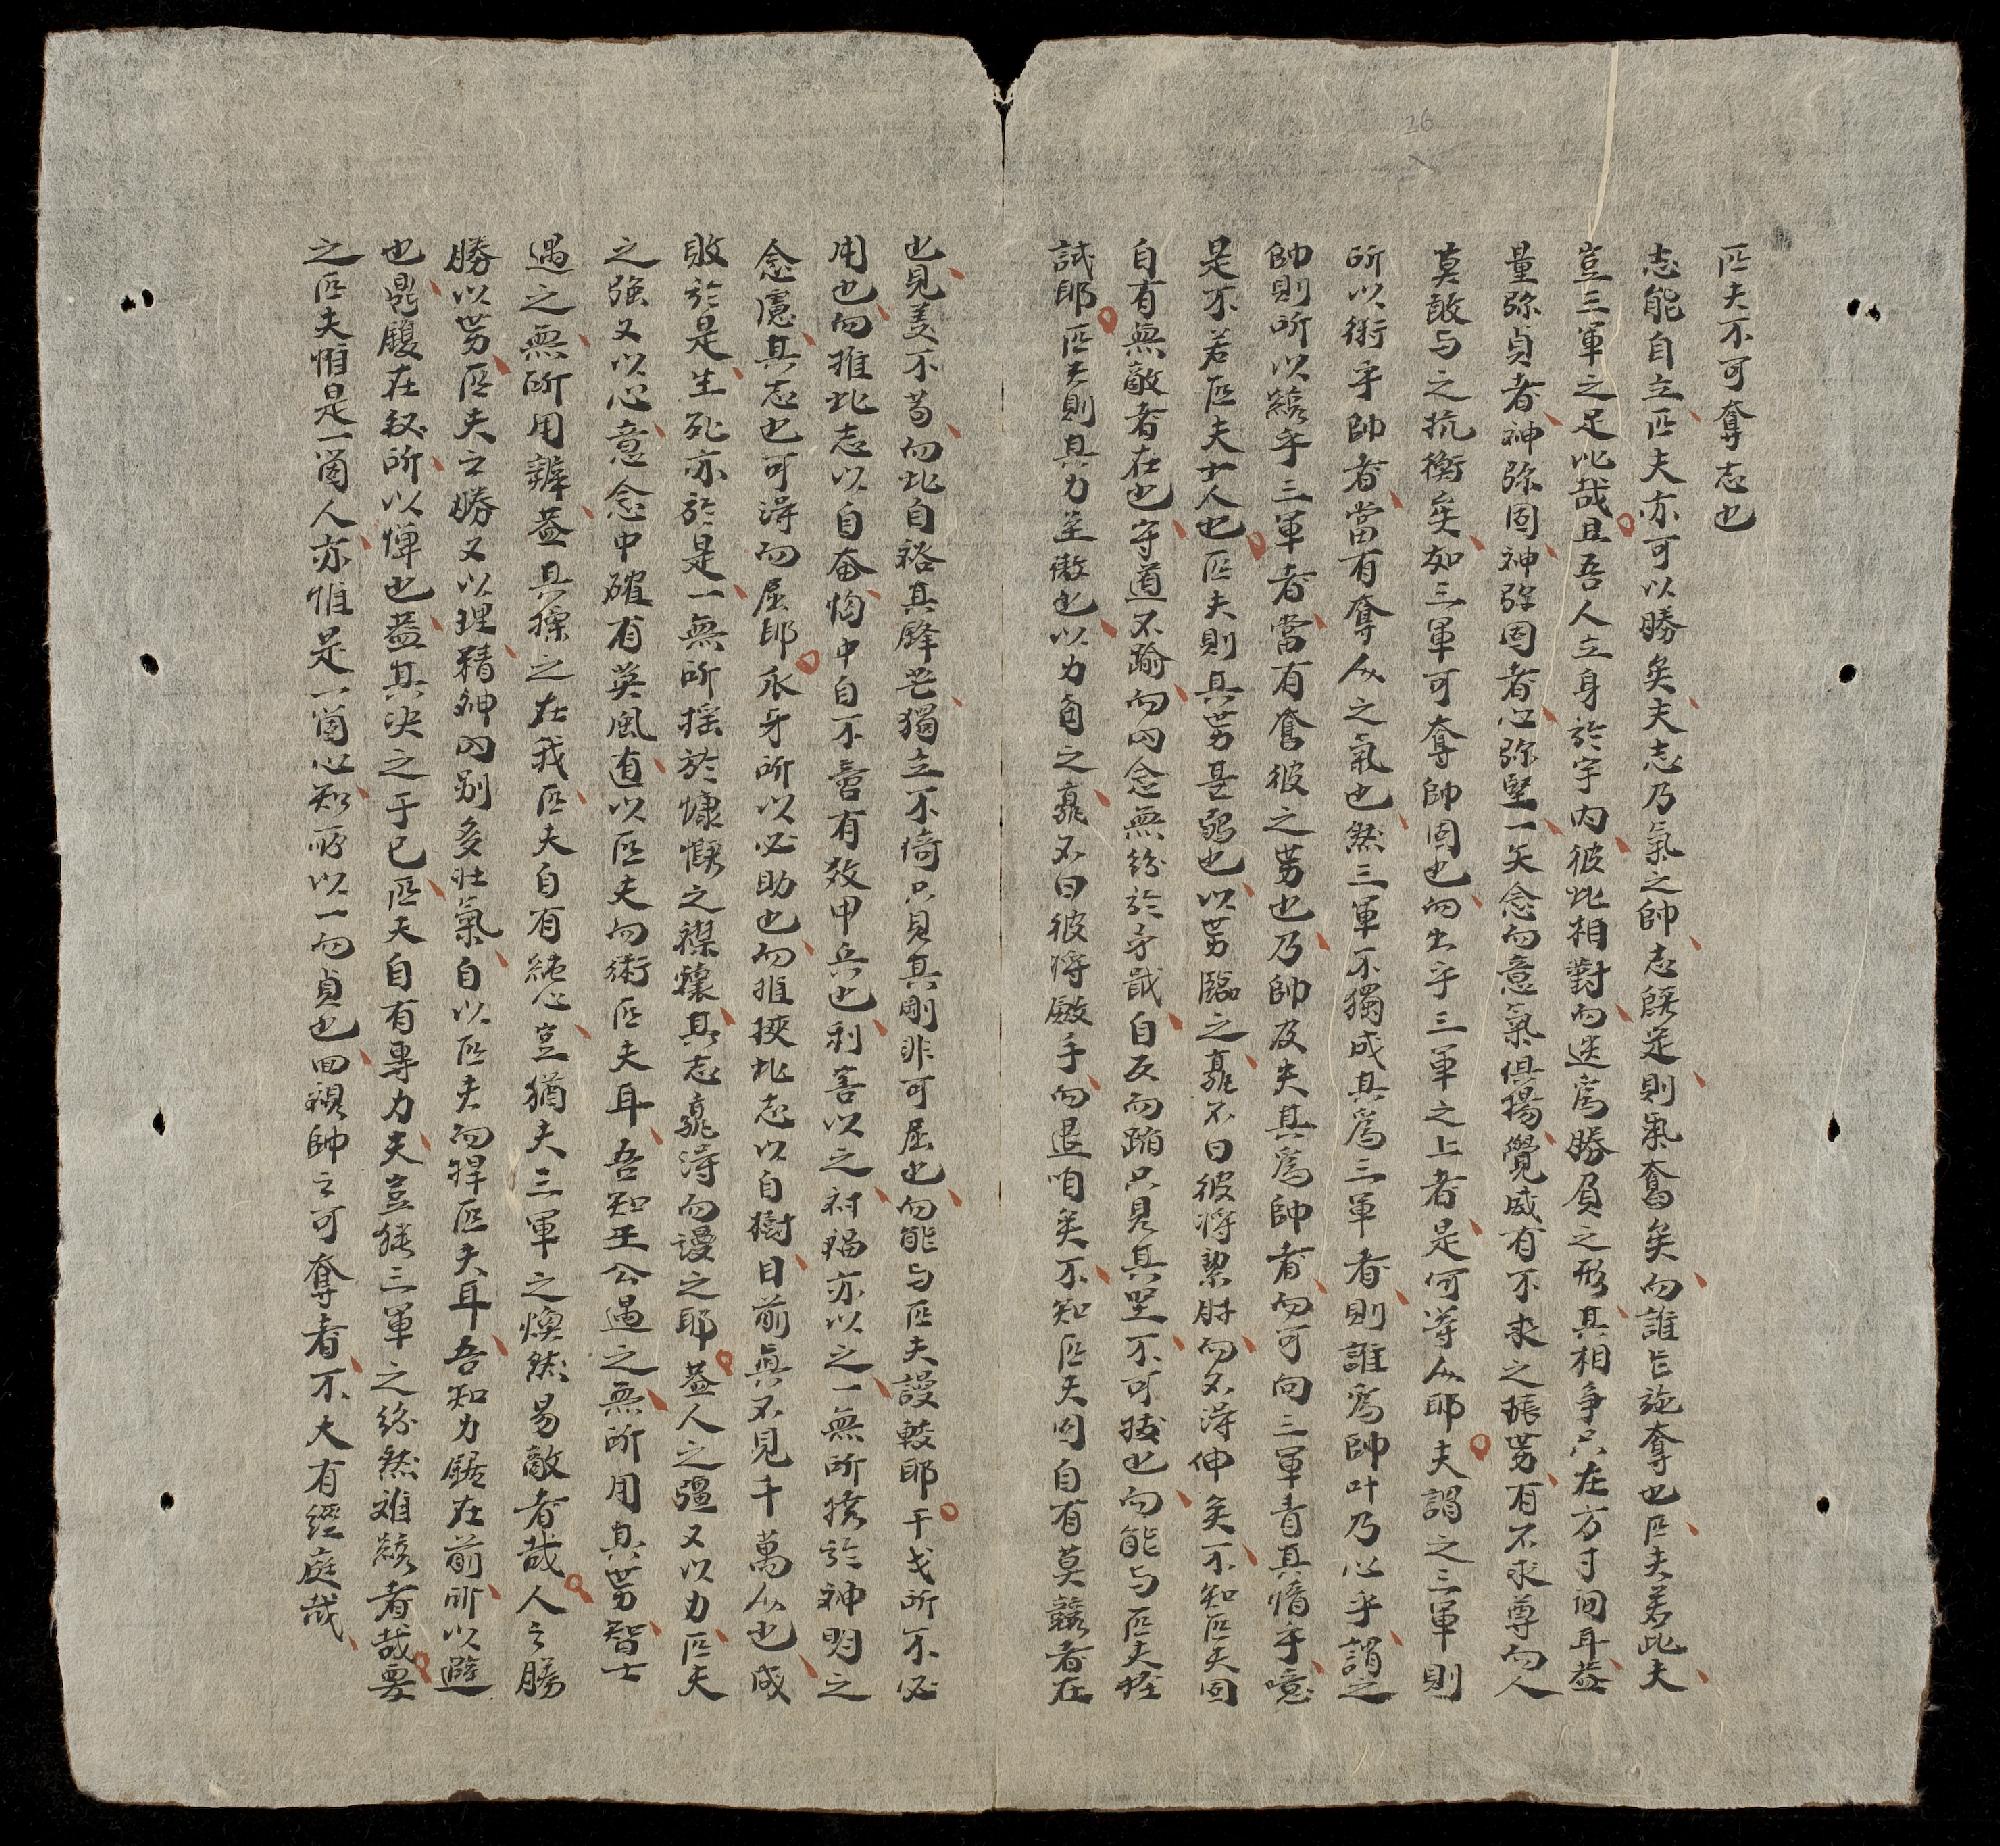 26
匹夫不可奪志也
志能自立匹夫亦可以勝矣夫志乃氣之帥志餒是則氣奪矣而誰能奪也匹夫若此夫
豈三軍之足比哉且吾人立身於宇内彼此相對而迭爲勝負之形其相争只在方寸间耳盖
量弥貞者神弥固神弥固者心弥堅一矢念而意氣俱揚覺威有不求之振势有不求尊而人
莫敢与之抗衡矣如三軍可奪帥固也而出乎三軍之上者是何等人耶夫謂之三軍則
所以術乎帥者當有奪人之氣也然三軍不獨成其爲三軍者則誰爲帥叶乃心乎謂之
帥則所以統乎三軍者當有奮彼之势也乃帥及失其爲帥者而可向三軍者其惰乎噫
是不若匹夫甘人也匹夫則其势甚弱也以势臨之孰不曰彼将絜肘而不得伸矣不知匹夫固
自有無敵者在也守道不踰而内念無紛於矛戟自反而踊只見其堅不可拔也而能与匹夫
試耶匹夫則其力至微也以力角之孰不曰彼将歛手而退咱矣不知匹夫固自有莫競者在
也見義不苟而此自裕其鋒芒獨立不倚只見其剛非可屈也而能与匹夫謾較耶干戈所不必
用也而推此志以自奮胸中自不啻有数甲兵也利害以之禍福亦以之一無所摇於神明之
念慮其志也可得而屈耶爪牙所以必助也而推挾此志以自樹目前真不見千萬人也成
敗於是生死亦於是一無所摇於慷慨之襟懷其志孰得而謾之耶盖人之疆又以力匹夫
之強又以心意念中確有英風直以匹夫而術匹夫耳吾知王公遇之無所用其势智士
遇之無所用辨盖其操之在我匹夫自有純心豈猶夫三軍之煥然易敵者哉人之勝
勝以势匹夫之勝又以理精神内别多壮氣自以匹夫而捍匹夫耳吾知力鋸在前所以避
也鼎鑊在後所以憚也盖其決之于已匹夫自有專力夫豈猶三軍之紛然难統者哉要
之匹夫惟是一箇人亦惟是一箇心知所以一而貞也回視帥之可奪者不大有經庭哉